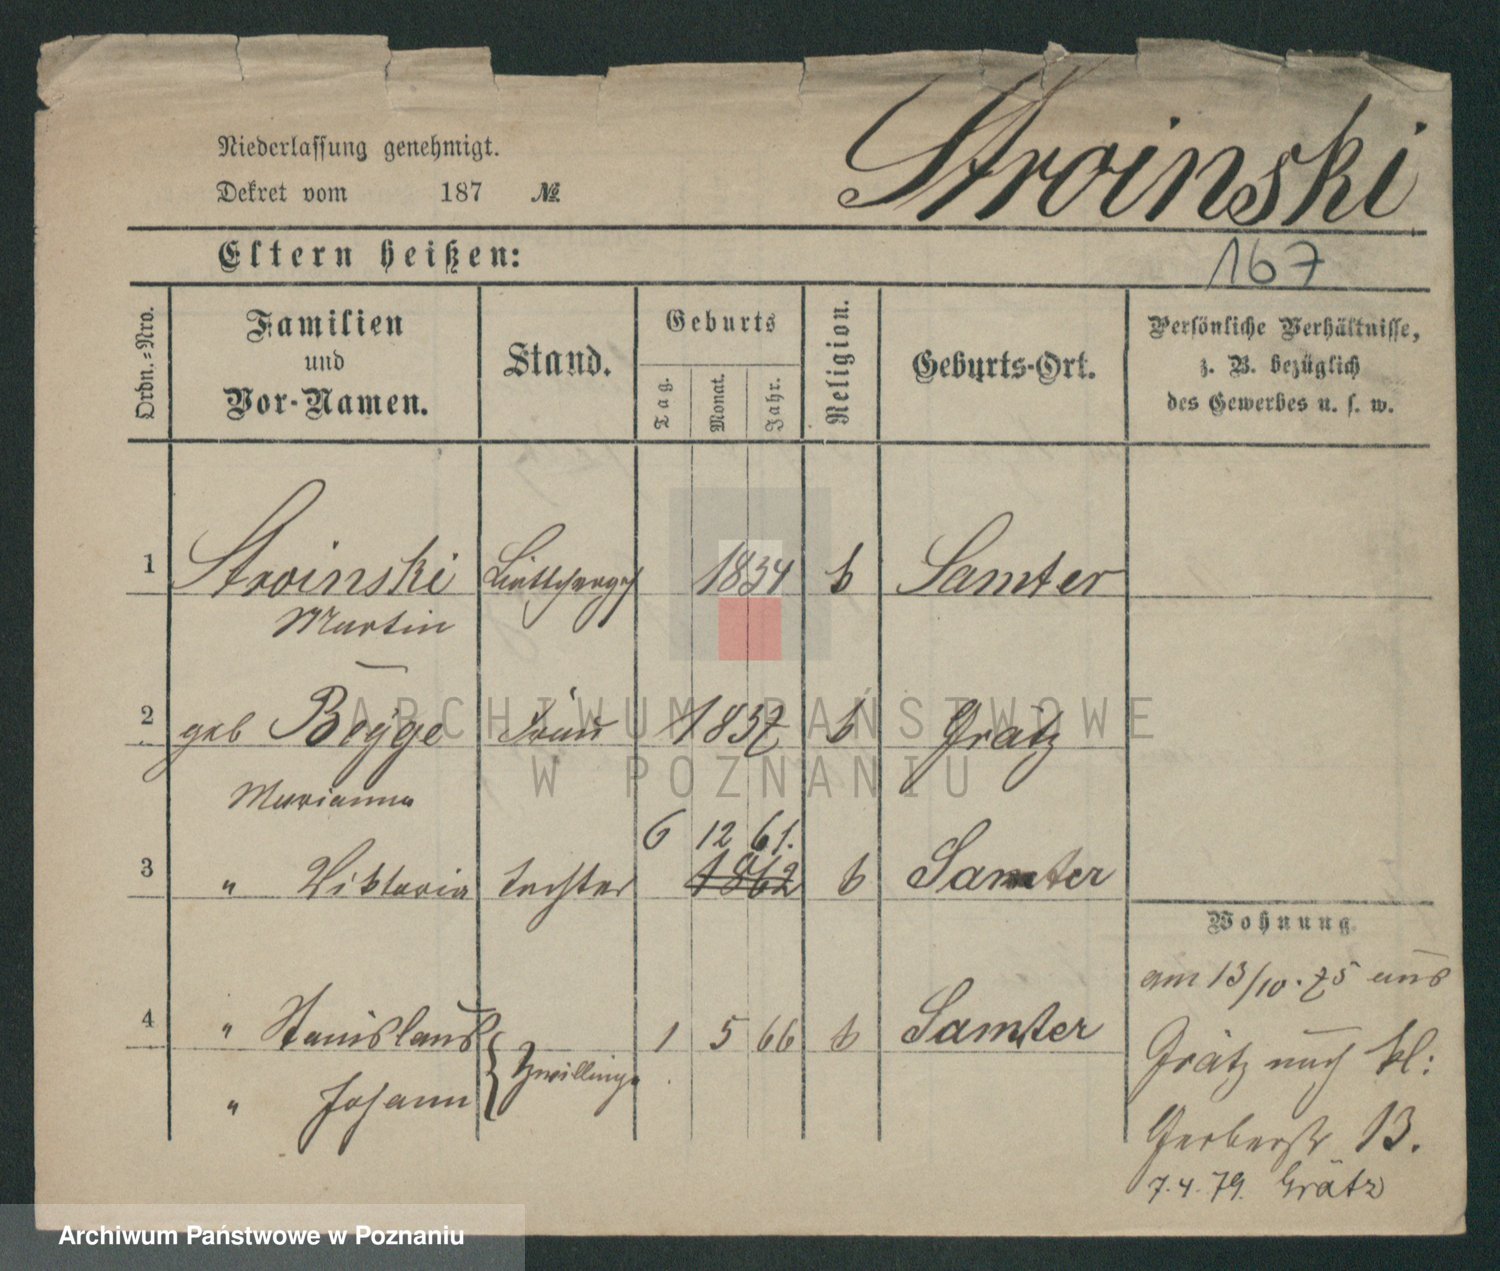 Stroinski
Niederlassung genehmigt.
Dekret vom 187 №
Eltern heißen:
167
Ordn.-Nro.
Familien und Vor-Namen.
Stand.
Geburts
Tag.
Monat.
Jahr.
Religion.
Geburts-Ort.
Persönliche Verhältnisse,
z. B. bezüglich
des Gewerbes u. s. w.
1 Stroinski 1834 k Samter
Martin
2 geb Beyge Frau 1837 k Grätz
Marianna
6 12 61.
3 " Viktoria Tochter 1862 k Samter
Wohnung
am 13/10. 75 aus
4 " Stanislaus 1 5 66 k Samter
" Johann Zwillinge
Grätz nach kl:
Gerberstr 13.
7. 4. 79. Grätz
ARCHIWUM PAŃSTWOWE
W POZNANIU
Archiwum Państwowe w Poznaniu